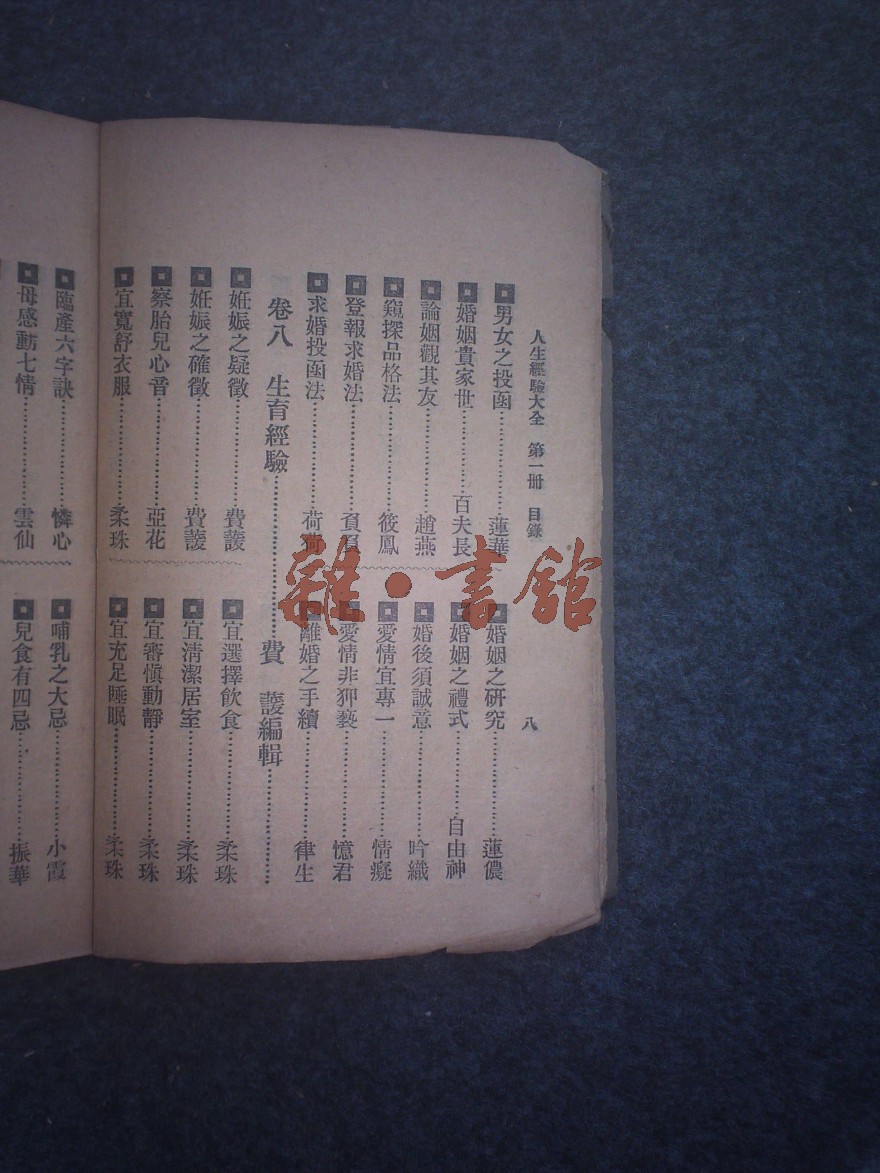 人生經驗大全 第一冊 目錄 八
男女之投函 蓮華
婚姻貴家世 百夫長
論姻觀其友 趙燕
窺探品格法 筱鳳
登報求婚法 頁頁
求婚投函法 荷荷
婚姻之研究 蓮儂
婚姻之禮式 自由神
婚後須誠意 吟織
愛情宜專一 情癡
愛情非狎褻 憶君
離婚之手續 律生
卷八 生育經驗 費護編輯
姙娠之疑徵 費護
姙娠之確徵 費護
察胎兒心音 亞花
宜寬舒衣服 柔珠
宜選擇飲食 柔珠
宜清潔居室 柔珠
宜審慎動靜 柔珠
宜充足睡眠 柔珠
臨產六字訣 憐心
母感動七情 雲仙
哺乳之大忌 小霞
兒食有四忌 振華
雜·書館